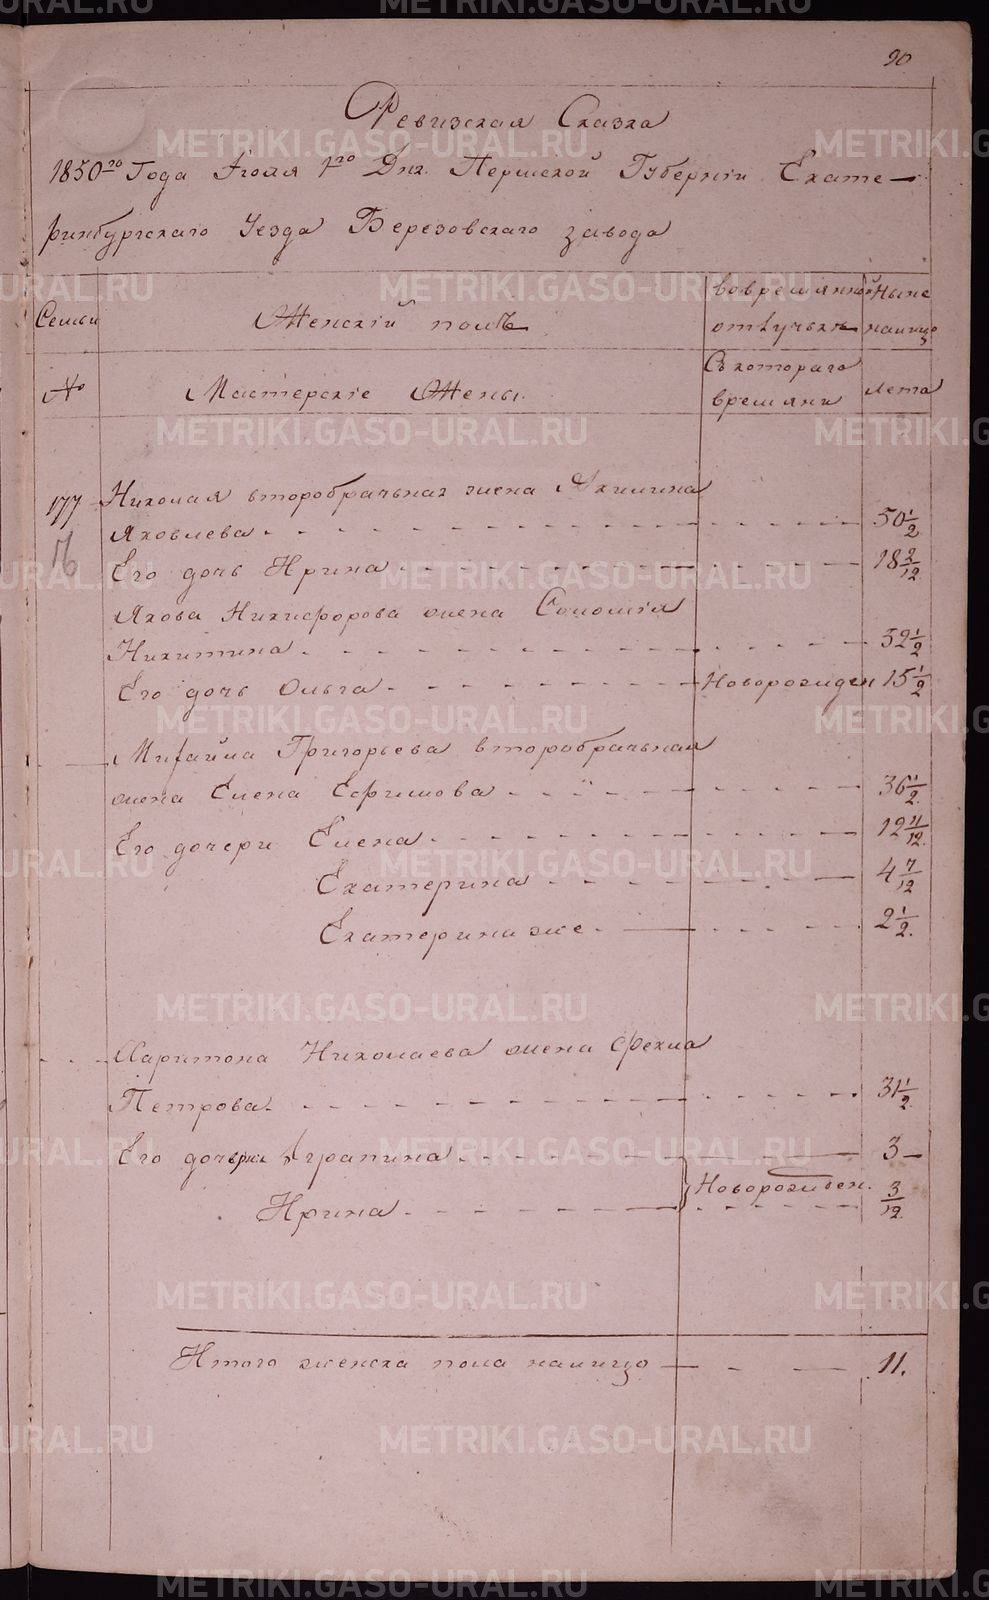 90
Ревизская Сказка
1850го Года Iюля 1го Дня. Пермской Губернiи Екате-
ринбургскаго Уезда Березовскаго завода
Семьи
Женскiй полъ
вовремянной отлучьке
Ныне налицо
№
Мастерскiе Жены.
Съкотораго времяни
лета
177 Николая второбрачьная жена Акилина
Яковлева 50 1/2
16
Его дочь Ирина 18 2/12
Якова Никифорова жена Соломiя
Никитина 52 1/2
Его дочь Ольга Новорожден 15 1/2
Михайла Григорьева второбрачьная
жена Елена Ефимова 36 1/2
Его дочери Елена 12 11/12
Екатерина 4 7/12
Екатерина же 2 1/2
Харитона Николаева жена Фекла
Петрова 31 1/2
Его дочери Аграпина 3
Новорожден.
Ирина 3/12
Итого женска пола налицо 11.
METRIKI.GASO-URAL.RU